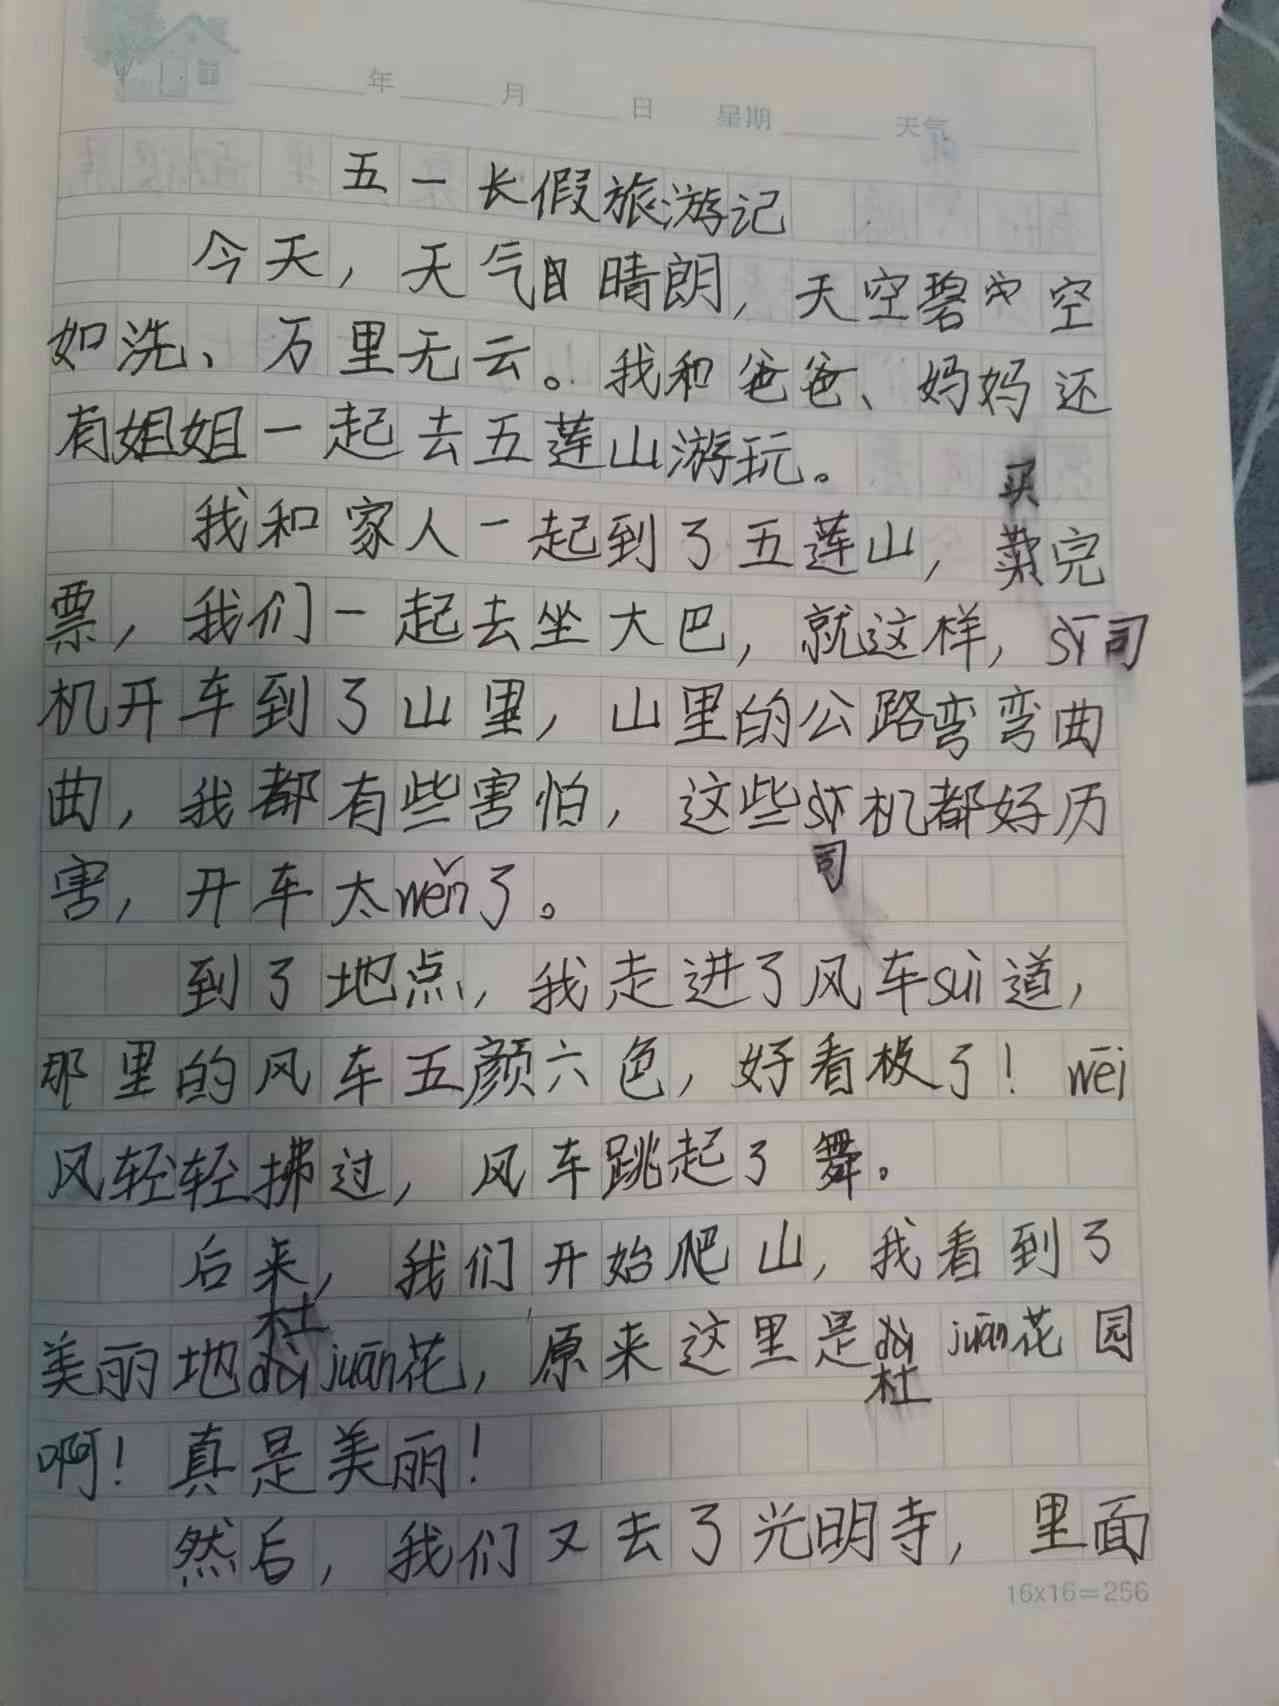 年 月 日 星期 天气
五一长假旅游记
今天，天气晴朗，天空碧空
如洗、万里无云。我和爸爸、妈妈还
有姐姐一起去五莲山游玩。
买
我和家人一起到了五莲山，完
票，我们一起去坐大巴，就这样，sī司
机开车到了山里，山里的公路弯弯曲
曲，我都有些害怕，这些sī机都好历
司
害，开车太wěn了。
到了地点，我走进了风车suì道，
那里的风车五颜六色，好看极了！wēi
风轻轻拂过，风车跳起了舞。
后来，我们开始爬山，我看到了
杜
美丽地dùjuān花，原来这里是dùjuān花园
杜
啊！真是美丽！
然后，我们又去了光明寺，里面
16x16=256